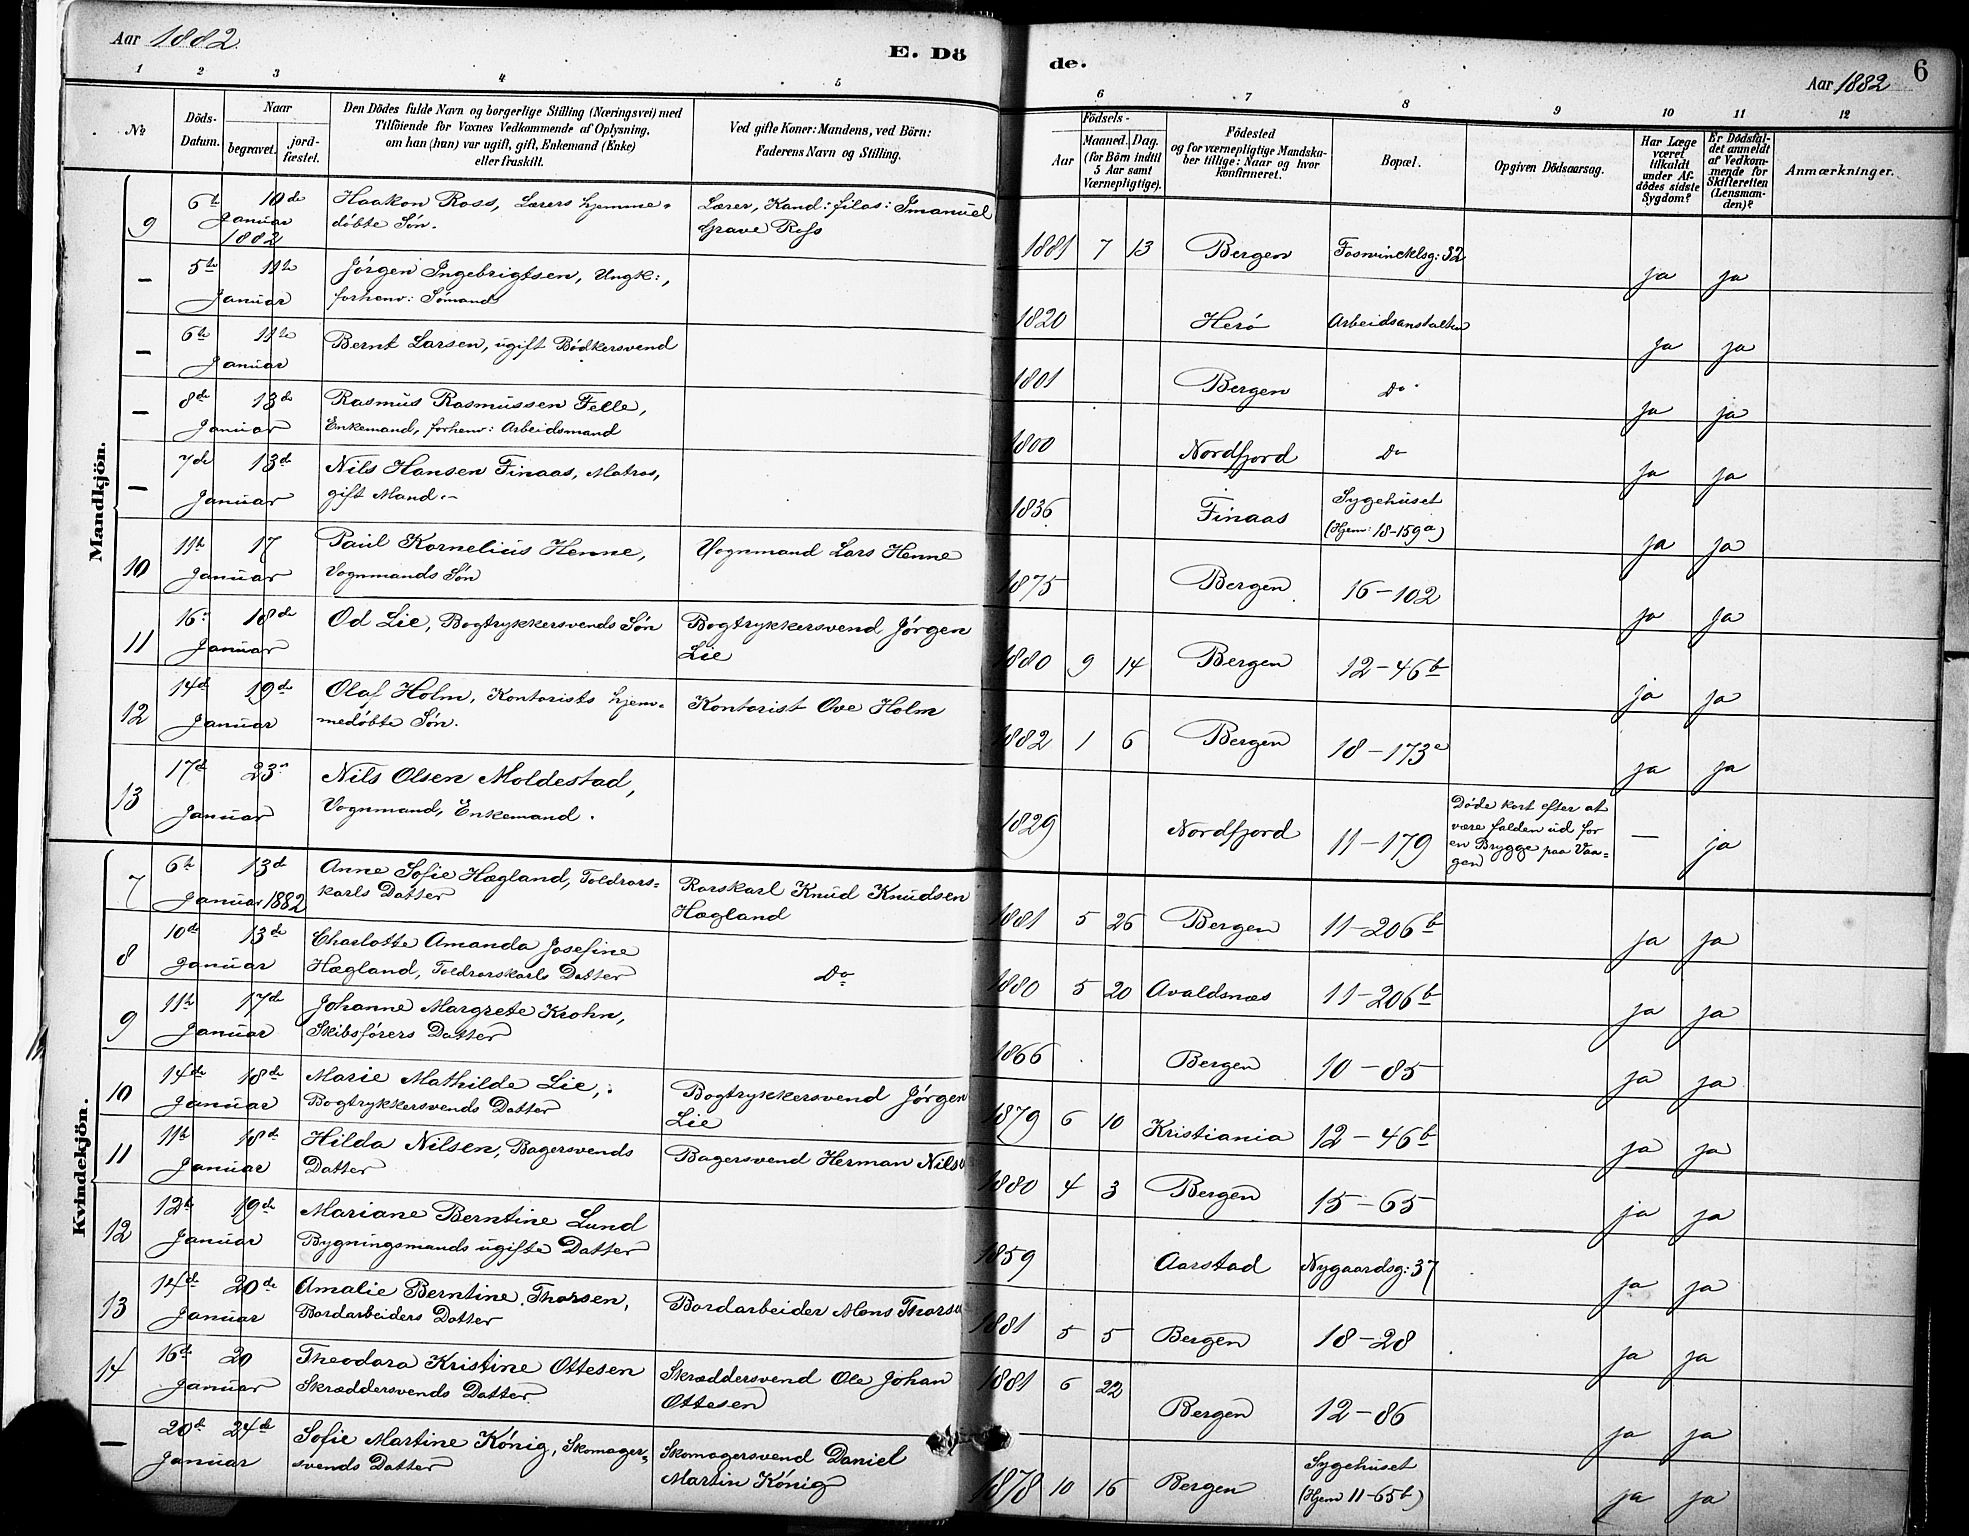 Aar 1882.
E. Dö
de.
Aar 1882
6
1 2 3 4 5
6 7 8 9 10 11 12
No
Döds-
Datum.
Naar
begravet.
jord-
fæstet.
Den Dödes fulde Navn og borgerlige Stilling (Næringsvei) med
Tilföiende for Voxnes Vedkommende af Oplysning,
om han (hun) var ugift, gift, Enkemand (Enke)
eller fraskilt.
Ved gifte Koner: Mandens, ved Börn:
Faderens Navn og Stilling.
Födsels-
Aar
Maaned.
Dag.
(for Börn indtil
5 Aar samt
Værnepligtige).
Födested
og for værnepligtige Mandska-
ber tillige: Naar og hvor
konfirmeret.
Bopæl.
Opgiven Dödsaarsag.
Har Læge
været
tilkaldt
under Af-
dödes sidste
Sygdom?
Er Dödsfal-
det anmeldt
af Vedkom-
mende for
Skifteretten
(Lensman-
den)?
Anmærkninger.
Mandkjön.
9 6te 10de Haakon Ross, Lærers hjemme- Lærer, Kand: filos: Imanuel
Januar døbte Søn. Grave Ross
1882
1881 7 13 Bergen Fosvincklsg: 32 ja ja
— 5te 11te Jørgen Ingebrigtsen, Ungk:,
Januar forhenv: Sømand
1820 Herø Arbeidsanstalten ja ja
— 6te 11te Bernt Larsen, ugift Bødkersvend
Januar
1801 Bergen Do ja ja
— 8de 13de Rasmus Rasmussen Felle,
Januar Enkemand, forhenv: Arbeidsmand
1800 Nordfjord Do ja ja
— 7de 13de Nils Hansen Finaas, Matros,
Januar gift Mand.-
1836 Finaas Sygehuset
(Hjem: 18-159a) ja ja
10 11te 17 Paul Kornelius Henne, Vognmand Lars Henne
Januar Vognmands Søn
1875 Bergen 16-102 ja ja
11 16 18de Od Lie, Bogtrykkersvends Søn Bogtrykkersvend Jørgen
Januar Lie
1880 9 14 Bergen 12-46b ja ja
12 14de 19de Olaf Holm, Kontorists hjem- Kontorist Ove Holm
Januar medøbte Søn.
1882 1 6 Bergen 18-173 ja ja
13 17de 23 Nils Olsen Moldestad,
Januar Vognmand, Enkemand.
1829 Nordfjord 11-179 Døde kort efter at
være falden ud for
en Brygge paa Vaa-
gen — ja
Kvindekjön.
7 6te 13de Anne Sofie Hægland, Toldrors- Rorskarl Knud Knudsen
Januar 1882 karls Datter Hægland
1881 5 26 Bergen 11-206b ja ja
8 10de 13de Charlotte Amanda Josefine
Januar Hægland, Toldrorskarls Datter Do
1880 5 20 Avaldsnæs 11-206b ja ja
9 11te 17de Johanne Margrete Krohn,
Januar Skibsførers Datter
1866 Bergen 10-85 ja ja
10 14de 18de Marie Mathilde Lie, Bogtrykkersvend Jørgen
Januar Bogtrykkersvends Datter Lie
1879 6 10 Kristiania 12-46b ja ja
11 11te 18de Hilda Nilsen, Bagersvends Bagersvend Herman Nils
Januar Datter
1880 4 3 Bergen 15-65 ja ja
12 12te 19de Mariane Berntine Lund
Januar Bygningsmands ugifte Datter
1859 Aarstad Nygaardsg: 37 ja ja
13 14de 20de Amalie Berntine Thorsen, Bordarbeider Mons Thorse
Januar Bordarbeiders Datter
1881 5 5 Bergen 18-28 ja ja
14 16de 20 Theodora Kristine Ottesen Skræddersvend Ole Johan
Januar Skræddersvends Datter. Ottesen
1881 6 22 Bergen 12-86 ja ja
— 20de 24de Sofie Martine König, Skomager- Skomagersvend Daniel
Januar svends Datter Martin König
1878 10 16 Bergen Sygehuset
(Hjem 11-65b) ja ja